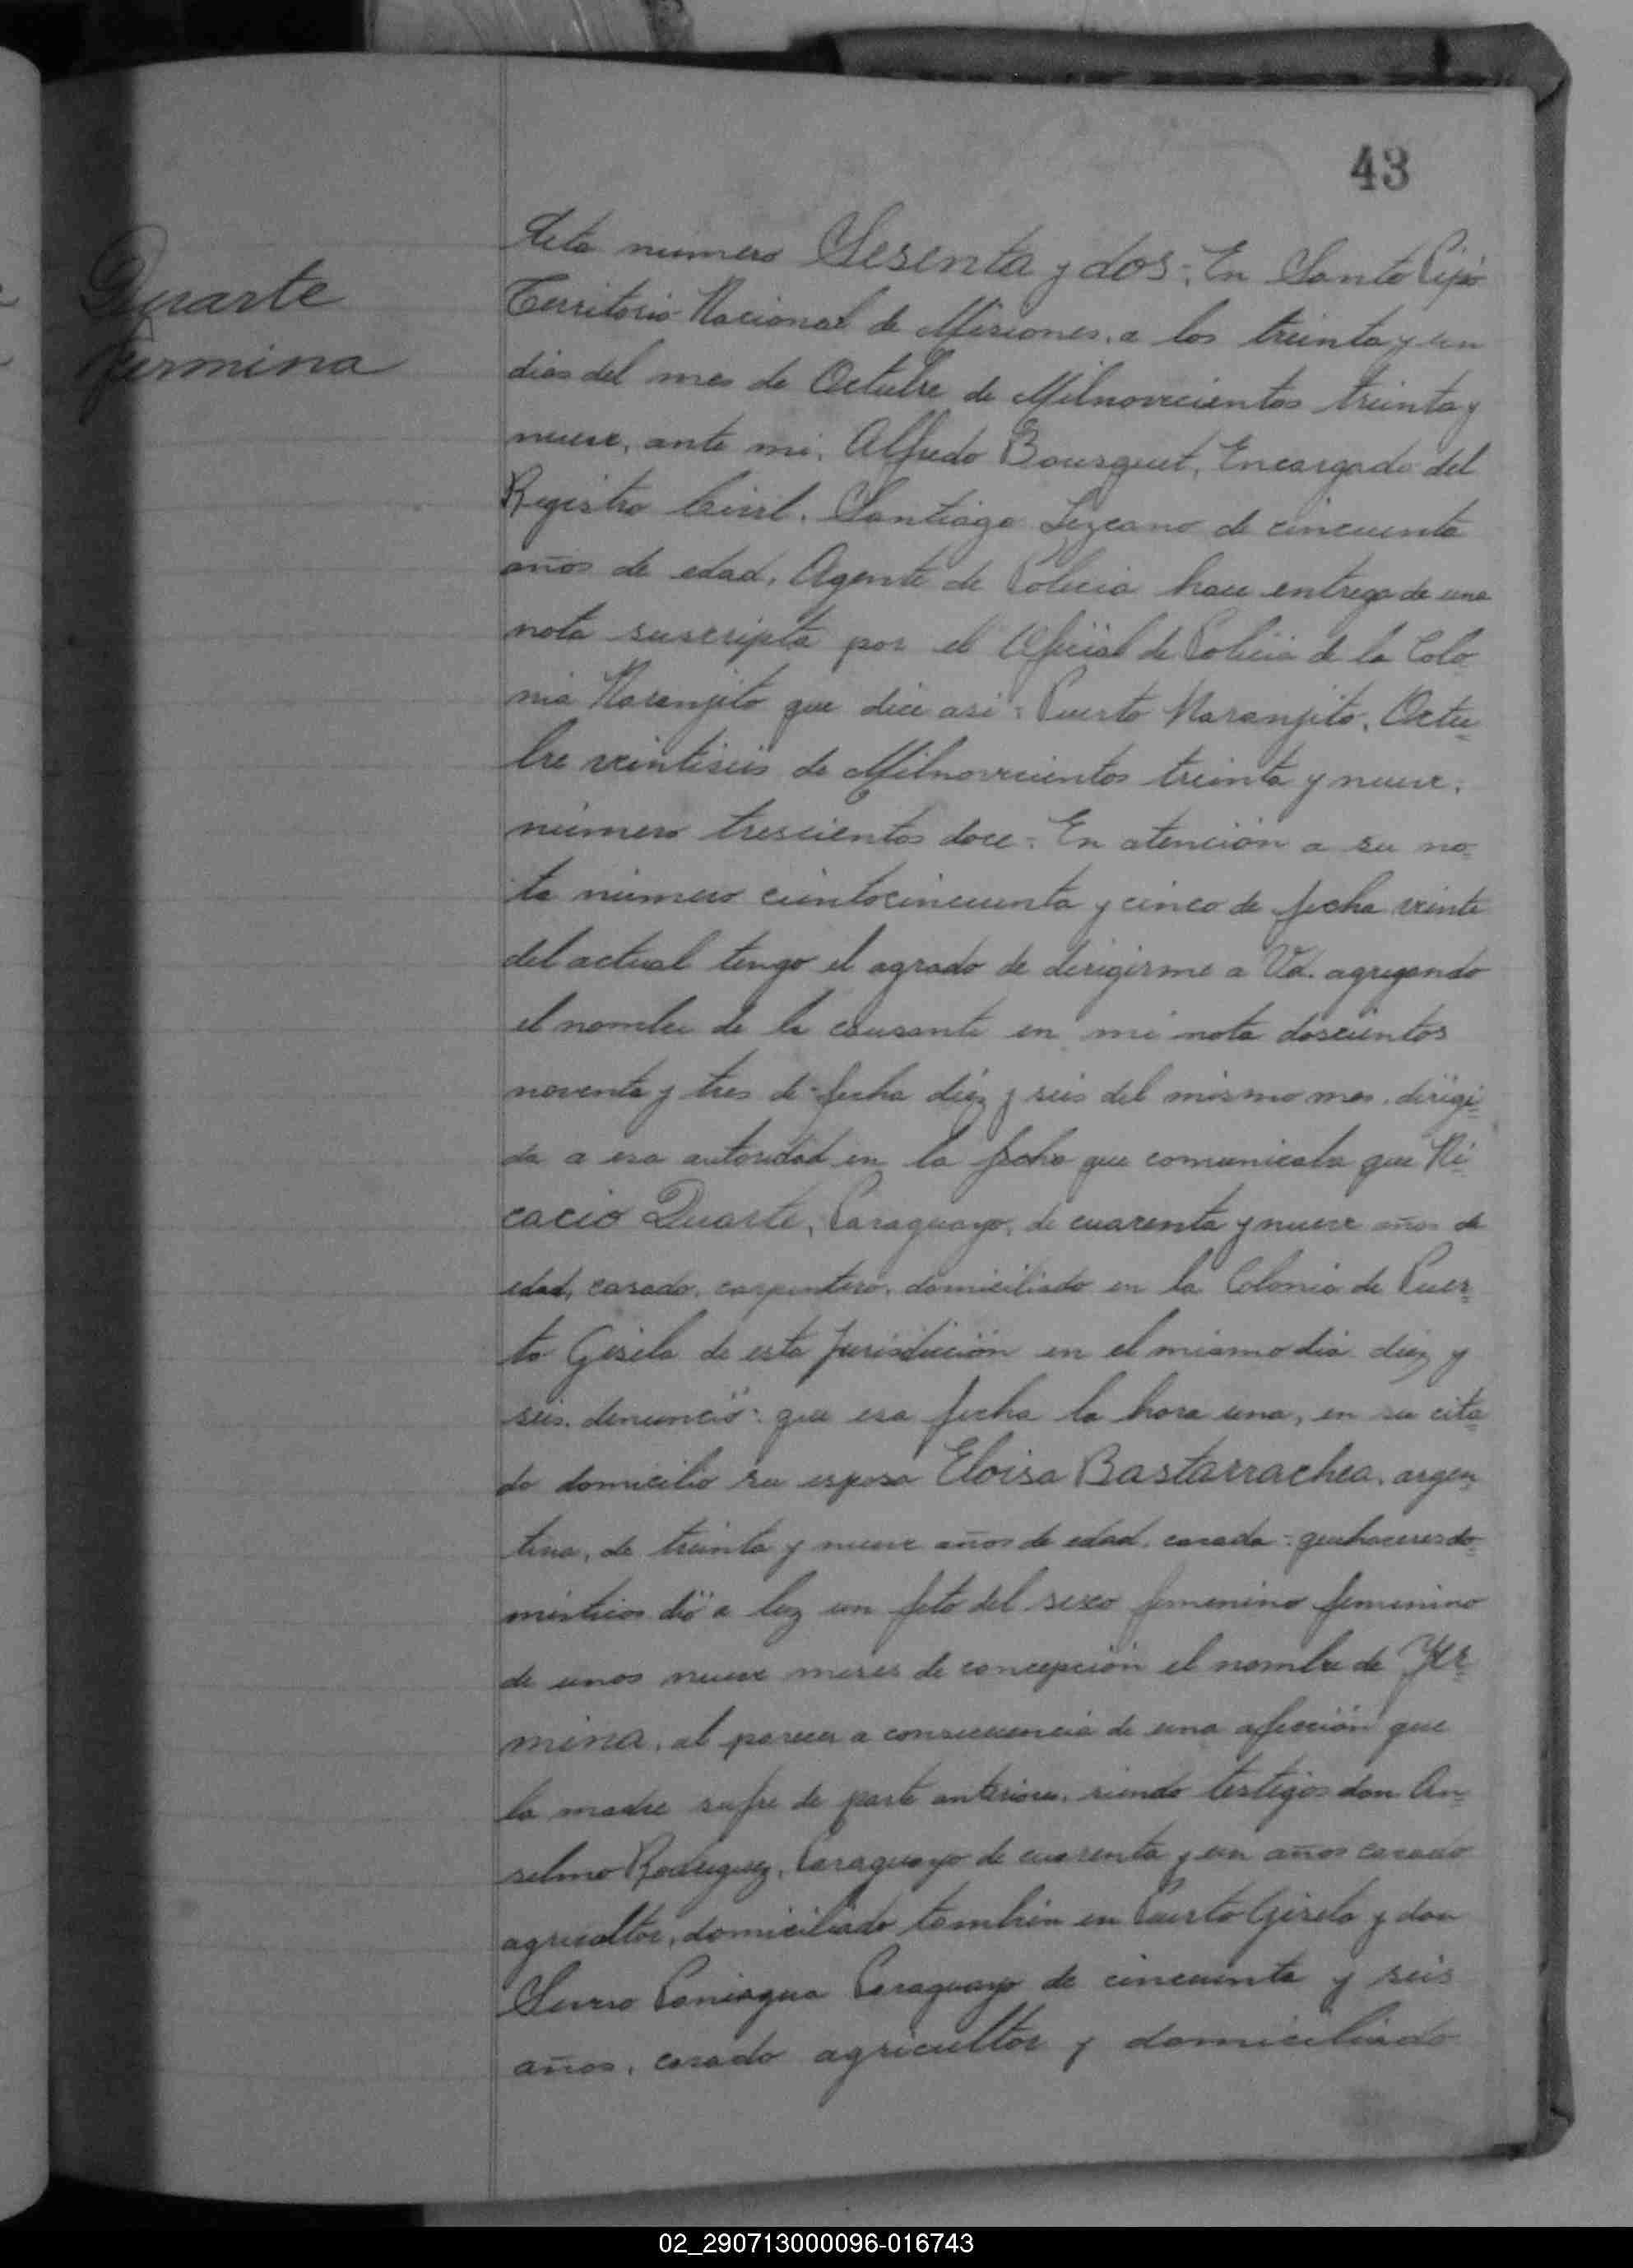 43
Duarte
Yermina
Acta numero Sesenta y dos. En Santo Pipó
Territorio Nacional de Misiones, a los treinta y un
dias del mes de Octubre de Milnovecientos treinta y
nueve, ante mi, Alfredo Bousquet, Encargado del
Registro Civil. Santiago Lezcano de cincuenta
años de edad, Agente de Policia hace entrega de una
nota suscripta por el Oficial de Policia de la Colo-
nia Naranjito que dice asi: Puerto Naranjito, Octu-
bre veintiseis de Milnovecientos treinta y nueve,
número trescientos doce. En atención a su no-
ta número cientocincuenta y cinco de fecha veinte
del actual tengo el agrado de dirigirme a Vd. agregando
el nombre de la causante en mi nota doscientos
noventa y tres de fecha diez y seis del mismo mes, dirigi-
da a esa autoridad en la fecha que comunicaba que Ni-
cacio Duarte, Paraguayo, de cuarenta y nueve años de
edad, casado, carpintero, domiciliado en la Colonia de Puer-
to Gisela de esta Jurisdicción en el mismo dia diez y
seis, denunció: que esa fecha la hora una, en su cita-
do domicilio su esposa Eloisa Bastarrachea, argen-
tina, de treinta y nueve años de edad, casada, quehaceres do-
mésticos dió a luz un feto del sexo femenino femenino
de unos nueve meses de concepción el nombre de Yer-
mina, al parecer a consecuencia de una afección que
la madre sufre de parte anterior, siendo testigos don An-
selmo Rodriguez, Paraguayo de cuarenta y un años casado
agricultor, domiciliado tambien en Puerto Gisela y don
Paniagua Paraguayo de cincuenta y seis
años, casado agricultor y domiciliado
02_290713000096-016743